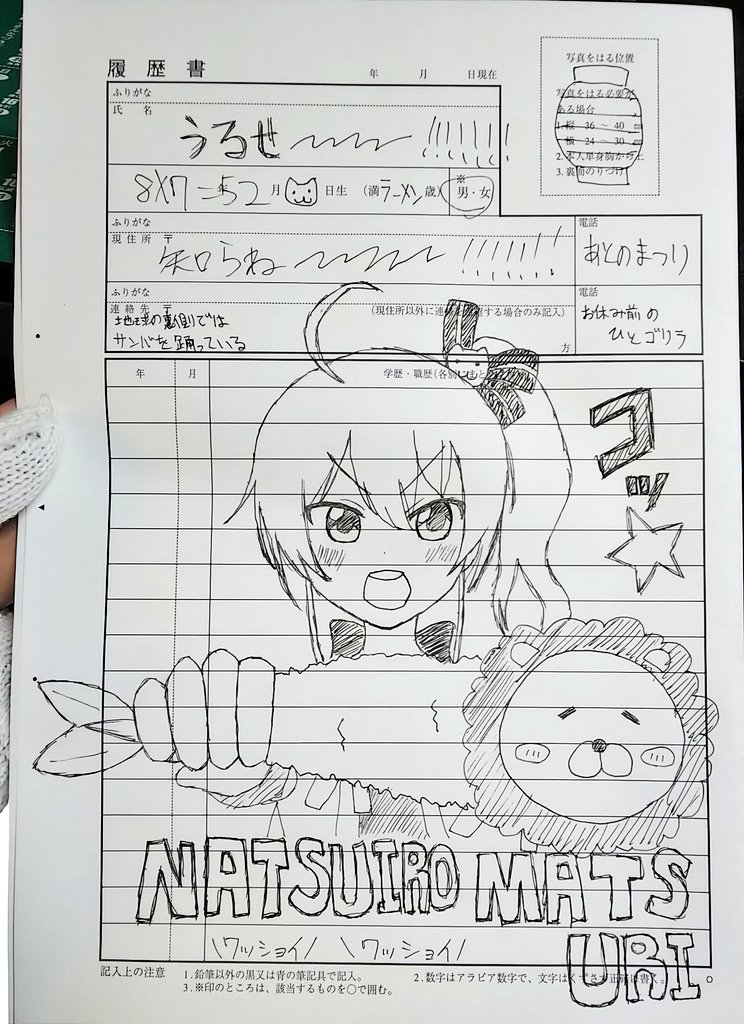 履歴書
年 月 日現在
写真をはる位置
写真をはる必要が
ある場合
1. 縦 36 ～ 40 mm
横 24 ～ 30 mm
2. 本人単身胸から上
3. 裏面のりづけ
ふりがな
氏 名
うるせ〰〰!!!!!!!
8×7=52 年 月 日生 (満ラーメン歳) ※ 男・女
ふりがな
現住所 〒
知らね〰〰!!!!!!!
電話
あとのまつり
ふりがな
連絡先 〒
(現住所以外に連絡を希望する場合のみ記入)
地球の裏側では
サンバを踊っている
方
電話
お休み前の
ひとゴリラ
年 月 学歴・職歴(各別にまと
コッ☆
NATSUIRO MATS
URI
\ワッショイ/ \ワッショイ/
記入上の注意
1. 鉛筆以外の黒又は青の筆記具で記入。
2. 数字はアラビア数字で、文字はくずさず正確に書く。
3. ※印のところは、該当するものを○で囲む。